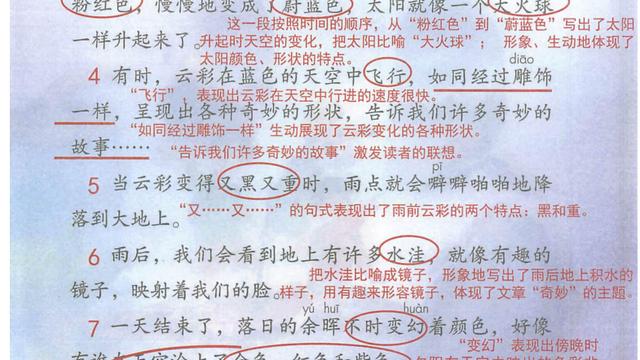 粉红色，慢慢地变成了蔚蓝色，太阳就像一个大火球
这一段按照时间的顺序，从“粉红色”到“蔚蓝色”写出了太阳
一样升起来了。
升起时天空的变化，把太阳比喻“大火球”；形象、生动地体现了
太阳颜色、形状的特点。
diāo
4 有时，云彩在蓝色的天空中飞行，如同经过雕饰
“飞行”，表现出云彩在天空中行进的速度很快。
一样，呈现出各种奇妙的形状，告诉我们许多奇妙的
“如同经过雕饰一样”生动展现了云彩变化的各种形状。
故事……
“告诉我们许多奇妙的故事”激发读者的联想。
pī
5 当云彩变得又黑又重时，雨点就会噼噼啪啪地降
落到大地上。
“又……又……”的句式表现出了雨前云彩的两个特点：黑和重。
6 雨后，我们会看到地上有许多水洼，就像有趣的
把水洼比喻成镜子，形象地写出了雨后地上积水的
镜子，映射着我们的脸。
样子，用有趣来形容镜子，体现了文章“奇妙”的主题。
yú huī huàn
7 一天结束了，落日的余晖不时变幻着颜色，好像
“变幻”表现出傍晚时